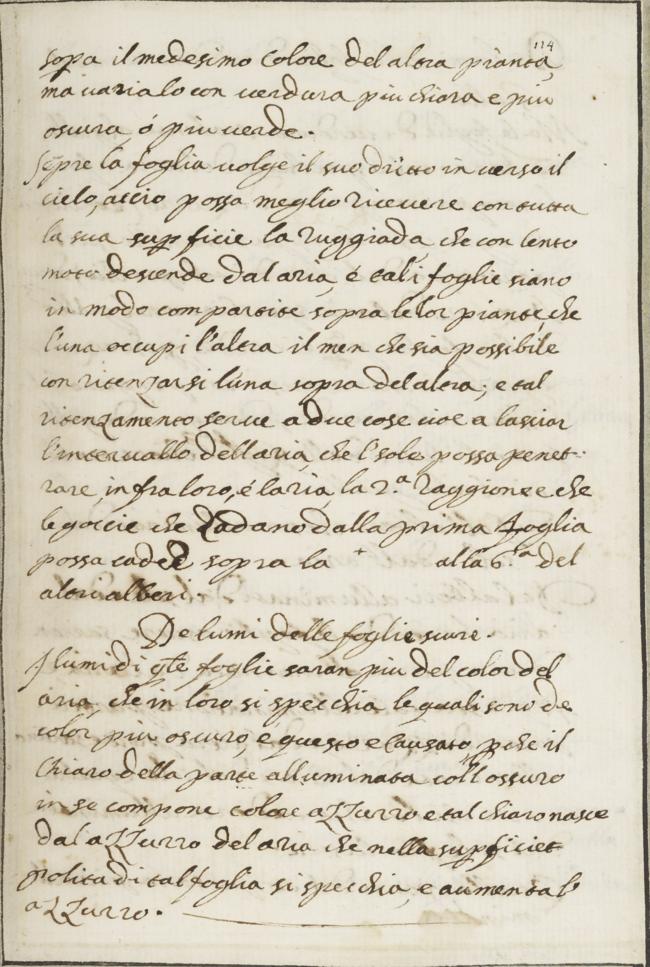 114
sopa il medesimo Colore del altra pianta,
ma varialo con verdura piu chiara e piu
oscura ó piu verde.
Sepre la foglia volge il suo dritto in verso il
cielo, accio possa meglio ricevere con tutta
la sua supficie la ruggiada, che con lento
moto descende dal aria, é tali foglie siano
in modo compartite sopra le lor piante, che
l'una occupi l'altra il men che sia possibile
con ritenzarsi l'una sopra del altra; e tal
ritenzamento serve a due cose cioe a lasciar
l'intervallo dell aria, che l' sole possa penet-
rare, in fra loro, é l'aria, la 2.ª raggione e che
le goccie che Zadano dalla prima foglia
possa cader sopra la + alla 6.ª del
altri alberi.
De lumi delle foglie scure.
I lumi di qte foglie saran piu del color del
aria, che in loro si specchia le quali sono de
color piu oscuro, e questo e causato pche il
Chiaro della parte alluminata coll ossuro
in se compone colore aZZurro e tal chiaro nasce
dal aZZurro del aria che nella supficiet
polita di tal foglia si specchia, e aumenta l'
aZZurro.